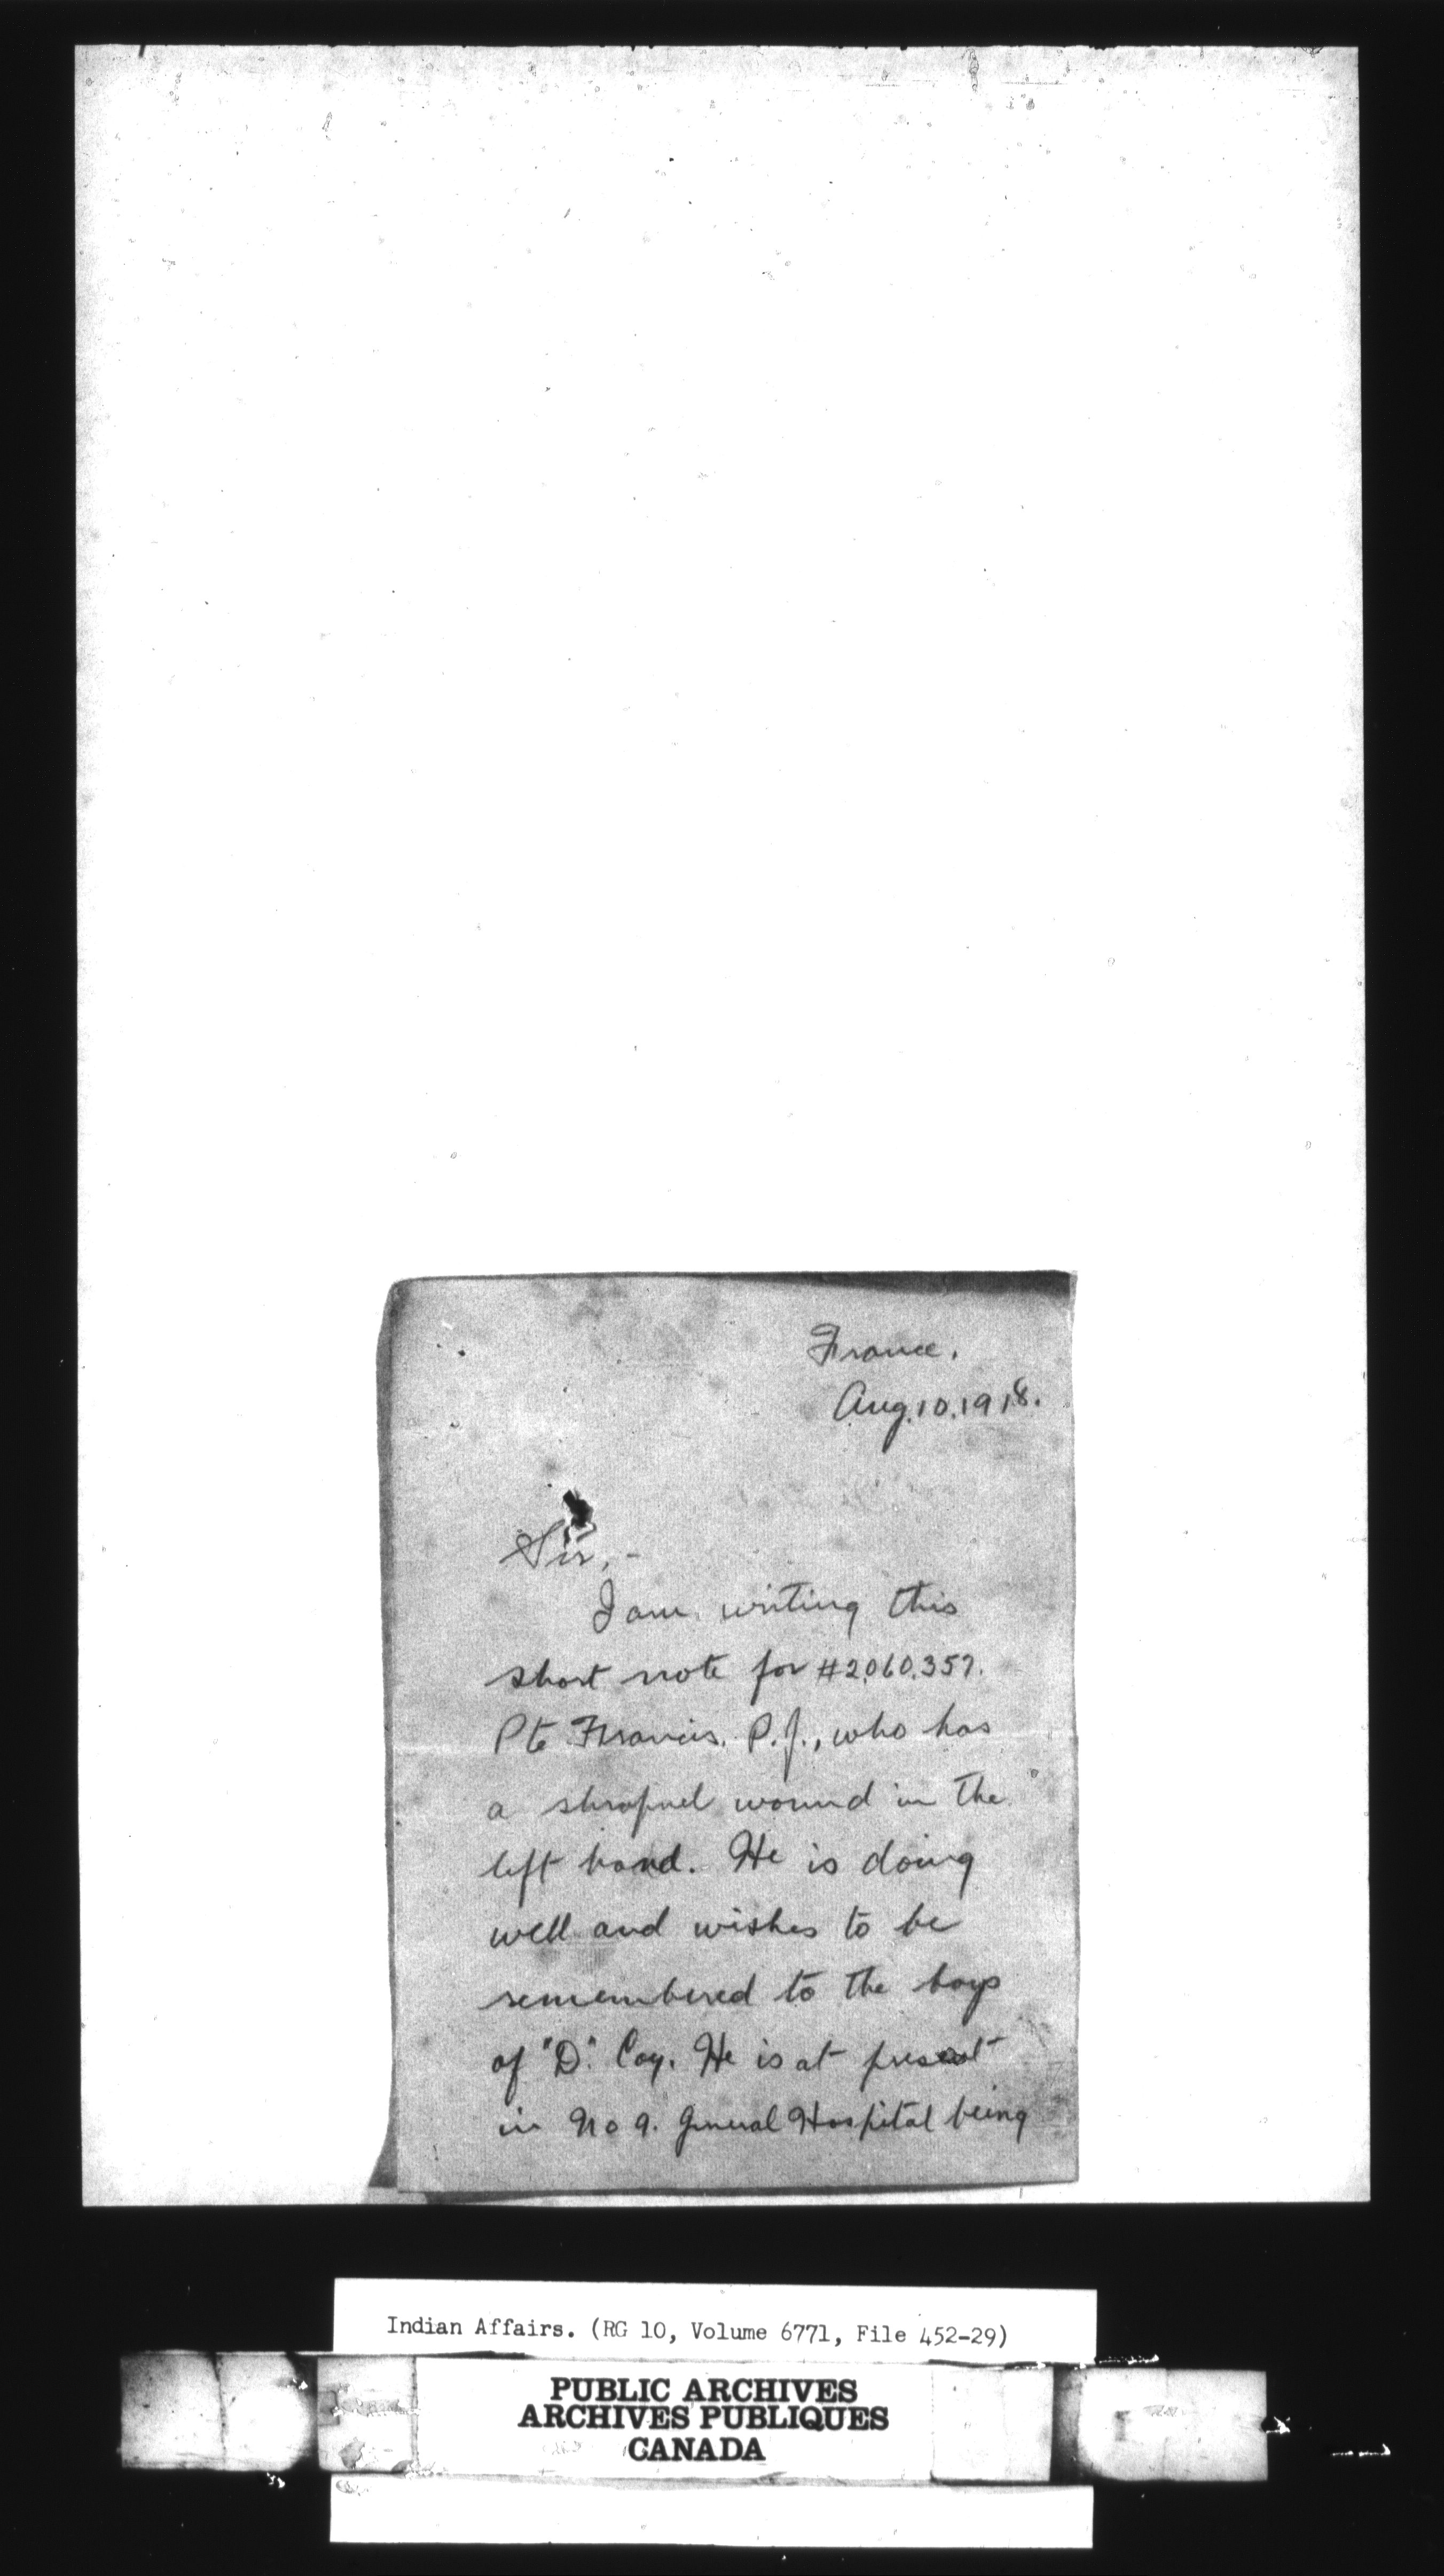 France.
Aug. 10. 1918.
Sir, -
I am writing this
short note for #2060.357.
Pte Francis. P.J., who has
a shrapnel wound in the
left hand. He is doing
well and wishes to be
remembered to the boys
of "D." Coy. He is at present
in No 9. General Hospital being
Indian Affairs. (RG 10, Volume 6771, File 452-29)
PUBLIC ARCHIVES
ARCHIVES PUBLIQUES
CANADA